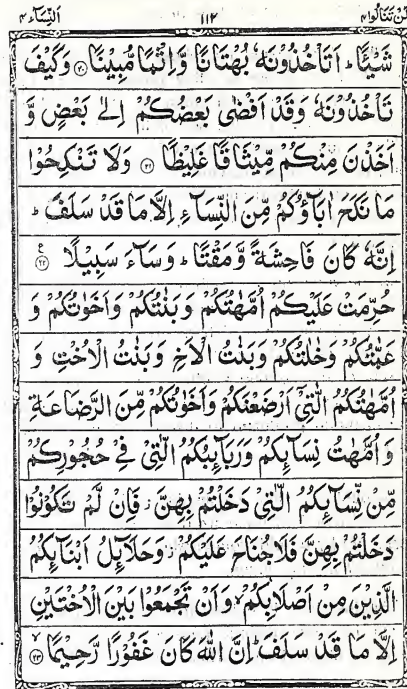 لن تنالوا ٤ ١١٢ النساء ٤
شَيْئًا ؕ اَتَاْخُذُوْنَهٗ بُهْتَانًا وَّاِثْمًا مُّبِيْنًا ﴿۲۰﴾ وَكَيْفَ
تَاْخُذُوْنَهٗ وَقَدْ اَفْضٰى بَعْضُكُمْ اِلٰى بَعْضٍ وَّ
اَخَذْنَ مِنْكُمْ مِّيْثَاقًا غَلِيْظًا ﴿۲۱﴾ وَلَا تَنْكِحُوْا
مَا نَكَحَ اٰبَآؤُكُمْ مِّنَ النِّسَآءِ اِلَّا مَا قَدْ سَلَفَ ؕ
اِنَّهٗ كَانَ فَاحِشَةً وَّمَقْتًا ؕ وَسَآءَ سَبِيْلًا ﴿۲۲﴾ ع
حُرِّمَتْ عَلَيْكُمْ اُمَّهٰتُكُمْ وَبَنٰتُكُمْ وَاَخَوٰتُكُمْ وَ
عَمّٰتُكُمْ وَخٰلٰتُكُمْ وَبَنٰتُ الْاَخِ وَبَنٰتُ الْاُخْتِ وَ
اُمَّهٰتُكُمُ الّٰتِيْٓ اَرْضَعْنَكُمْ وَاَخَوٰتُكُمْ مِّنَ الرَّضَاعَةِ
وَاُمَّهٰتُ نِسَآئِكُمْ وَرَبَآئِبُكُمُ الّٰتِيْ فِيْ حُجُوْرِكُمْ
مِّنْ نِّسَآئِكُمُ الّٰتِيْ دَخَلْتُمْ بِهِنَّ ز فَاِنْ لَّمْ تَكُوْنُوْا
دَخَلْتُمْ بِهِنَّ فَلَا جُنَاحَ عَلَيْكُمْ ز وَحَلَآئِلُ اَبْنَآئِكُمُ
الَّذِيْنَ مِنْ اَصْلَابِكُمْ ۙ وَاَنْ تَجْمَعُوْا بَيْنَ الْاُخْتَيْنِ
اِلَّا مَا قَدْ سَلَفَ ؕ اِنَّ اللّٰهَ كَانَ غَفُوْرًا رَّحِيْمًا ﴿۲۳﴾